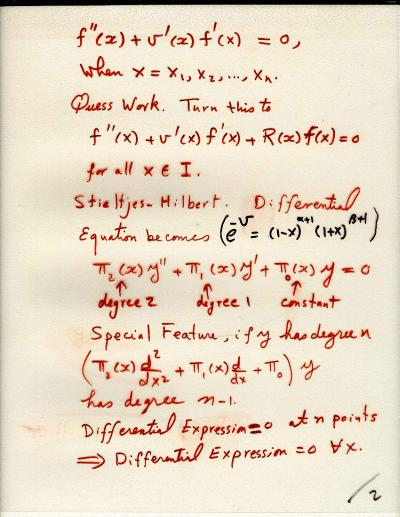 f''(x) + v'(x) f'(x) = 0,
when x = x₁, x₂, ..., xₙ.
Guess Work. Turn this to
f''(x) + v'(x) f'(x) + R(x) f(x) = 0
for all x ∈ I.
Stieltjes-Hilbert. Differential
Equation becomes (e^{-v} = (1-x)^{α+1} (1+x)^{β+1})
Π₂(x) y'' + Π₁(x) y' + Π₀(x) y = 0
↑ ↑ ↑
degree 2 degree 1 constant
Special Feature, if y has degree n
(Π₂(x) d²/dx² + Π₁(x) d/dx + Π₀) y
has degree n-1.
Differential Expression = 0 at n points
⇒ Differential Expression = 0 ∀x.
/2